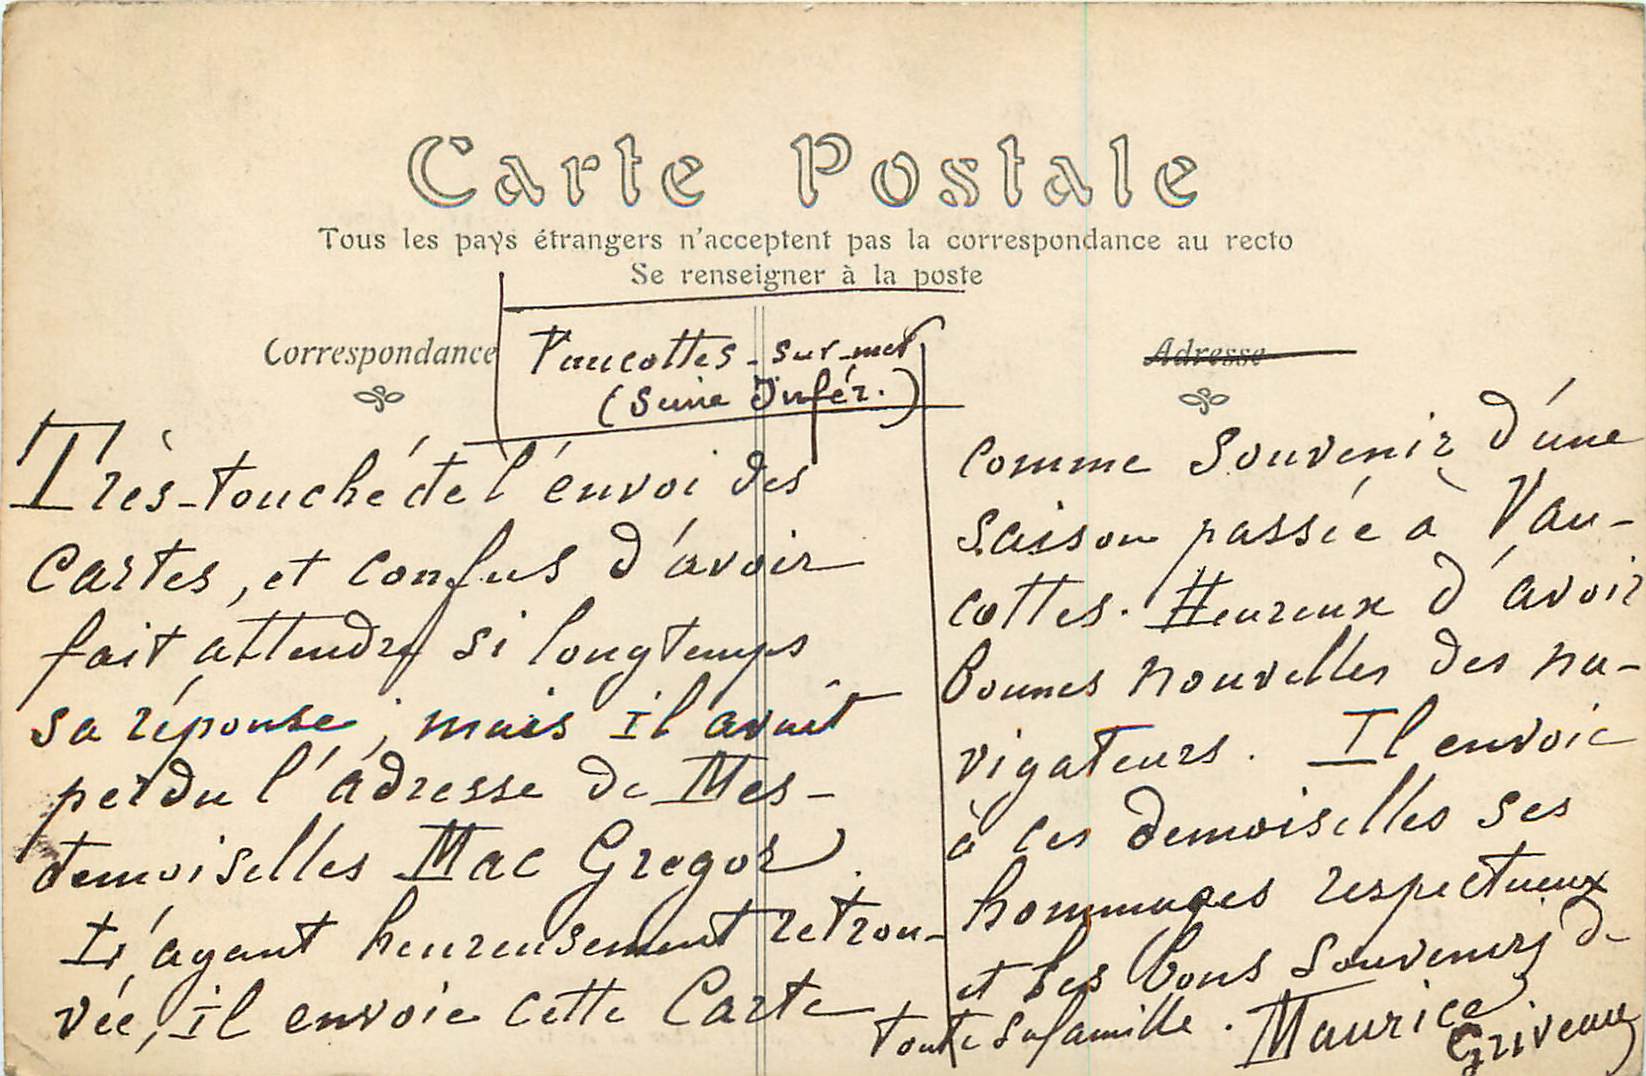 Carte Postale
Tous les pays étrangers n'acceptent pas la correspondance au recto
Se renseigner à la poste
Correspondance
Adresse
Vaucottes-sur-mer
(Seine Infér.)
Très-touché de l'envoi des
Cartes, et confus d'avoir
fait attendre si longtemps
sa réponse; mais il avait
perdu l'adresse de Mes-
demoiselles Mac Gregor.
L'ayant heureusement retrou-
vée, il envoie cette Carte
comme Souvenir d'une
saison passée à Vau-
cottes. Heureux d'avoir
bonnes nouvelles des na-
vigateurs. Il envoie
à ces demoiselles ses
hommages respectueux
et les bons Souvenirs de
toute sa famille. Maurice
Griveau